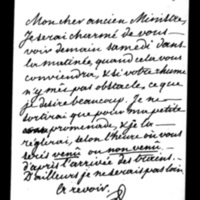 Mon cher ancien Ministre,
Je serai charmé de vous
voir demain samedi dans
la matinée, quand cela vous
conviendra, & si votre rhume
n'y met pas obstacle, ce que
je désire beaucoup. Je ne
sortirai que pour ma petite
promenade, & je la
règlerai, selon l'heure où vous
serez venu ou non venu,
d'après l'arrivée des trains.
D'ailleurs je ne serai pas loin
à revoir.